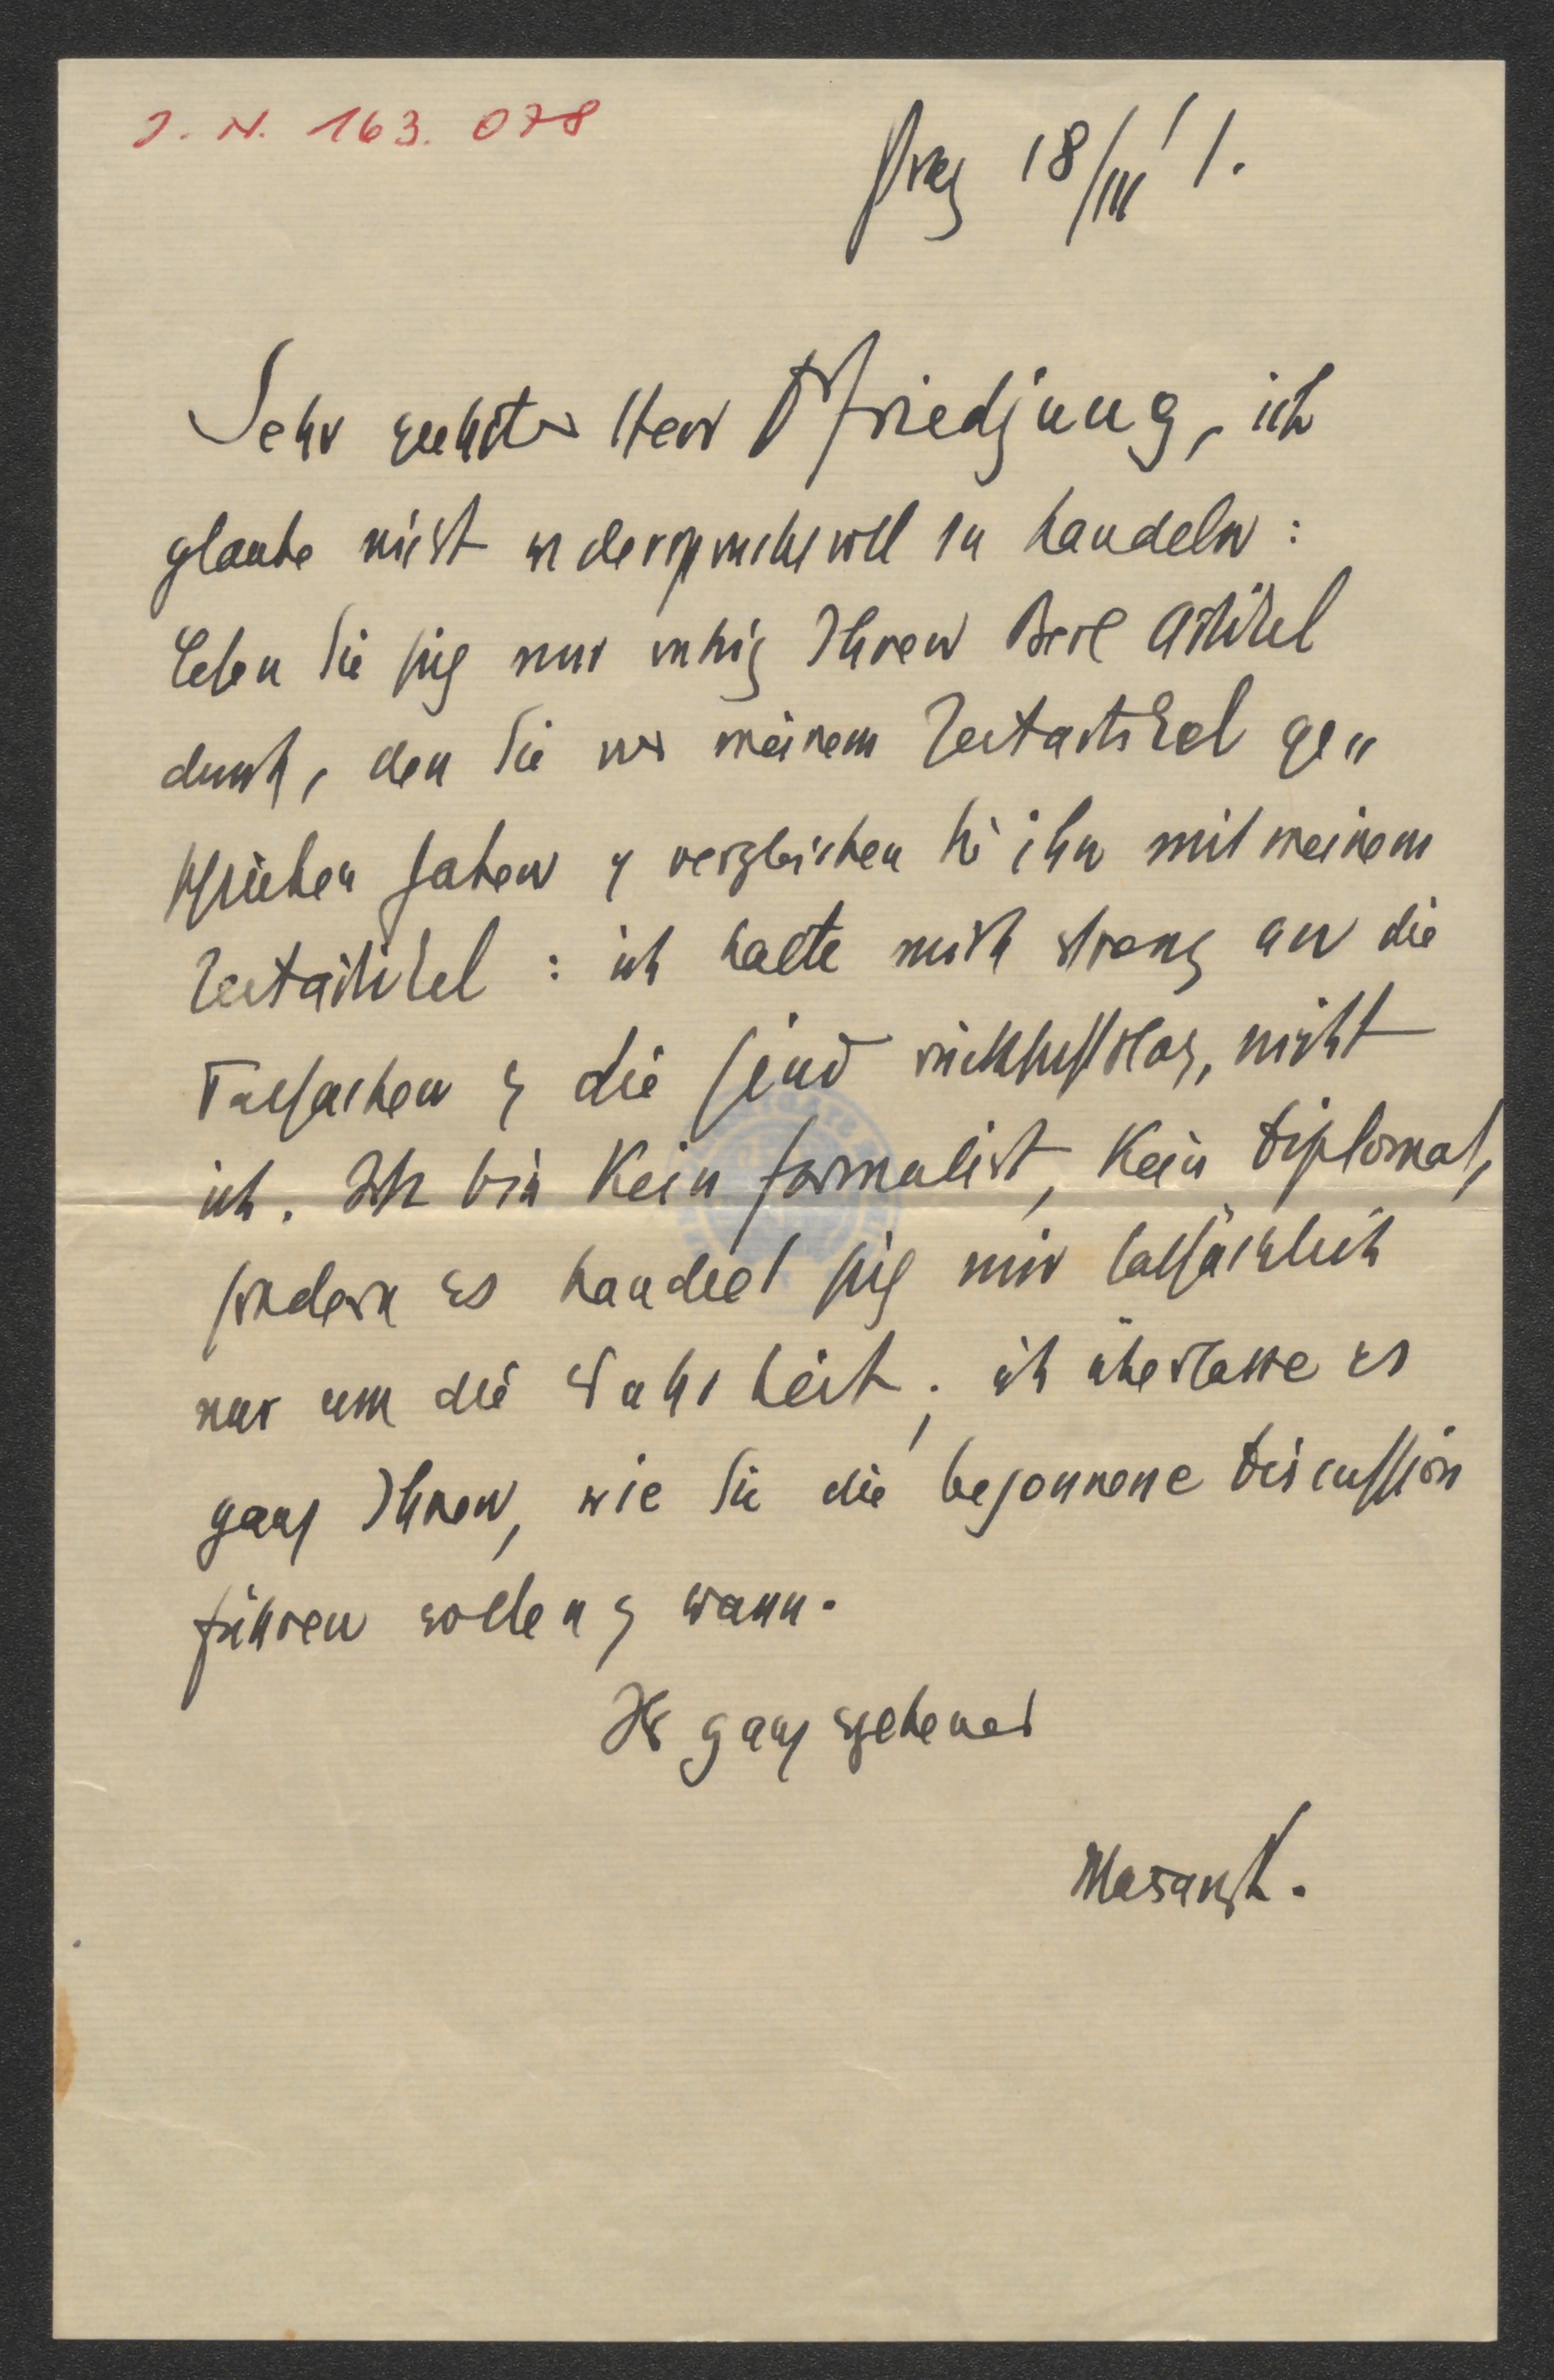 J. N. 163. 078
Prag 18/III 11.
Sehr geehrter Herr Dr Friedjung, ich
glaube nicht widerspruchsvoll zu handeln:
Lesen Sie sich nur ruhig Ihren Artikel
durch, den Sie vor meinem Zeitartikel ge„
schrieben haben & vergleichen Sie ihn mit meinem
Zeitartikel: ich halte mich streng an die
Tatsachen & die sind rücksichtslos, nicht
ich. Ich bin kein Formalist, kein Diplomat,
sondern es handelt sich mir tatsächlich
nur um die Wahrheit; ich überlasse es
ganz Ihnen, wie Sie die begonnene Discussion
führen wollen & wann.
Ihr ganz ergebener
Masaryk.